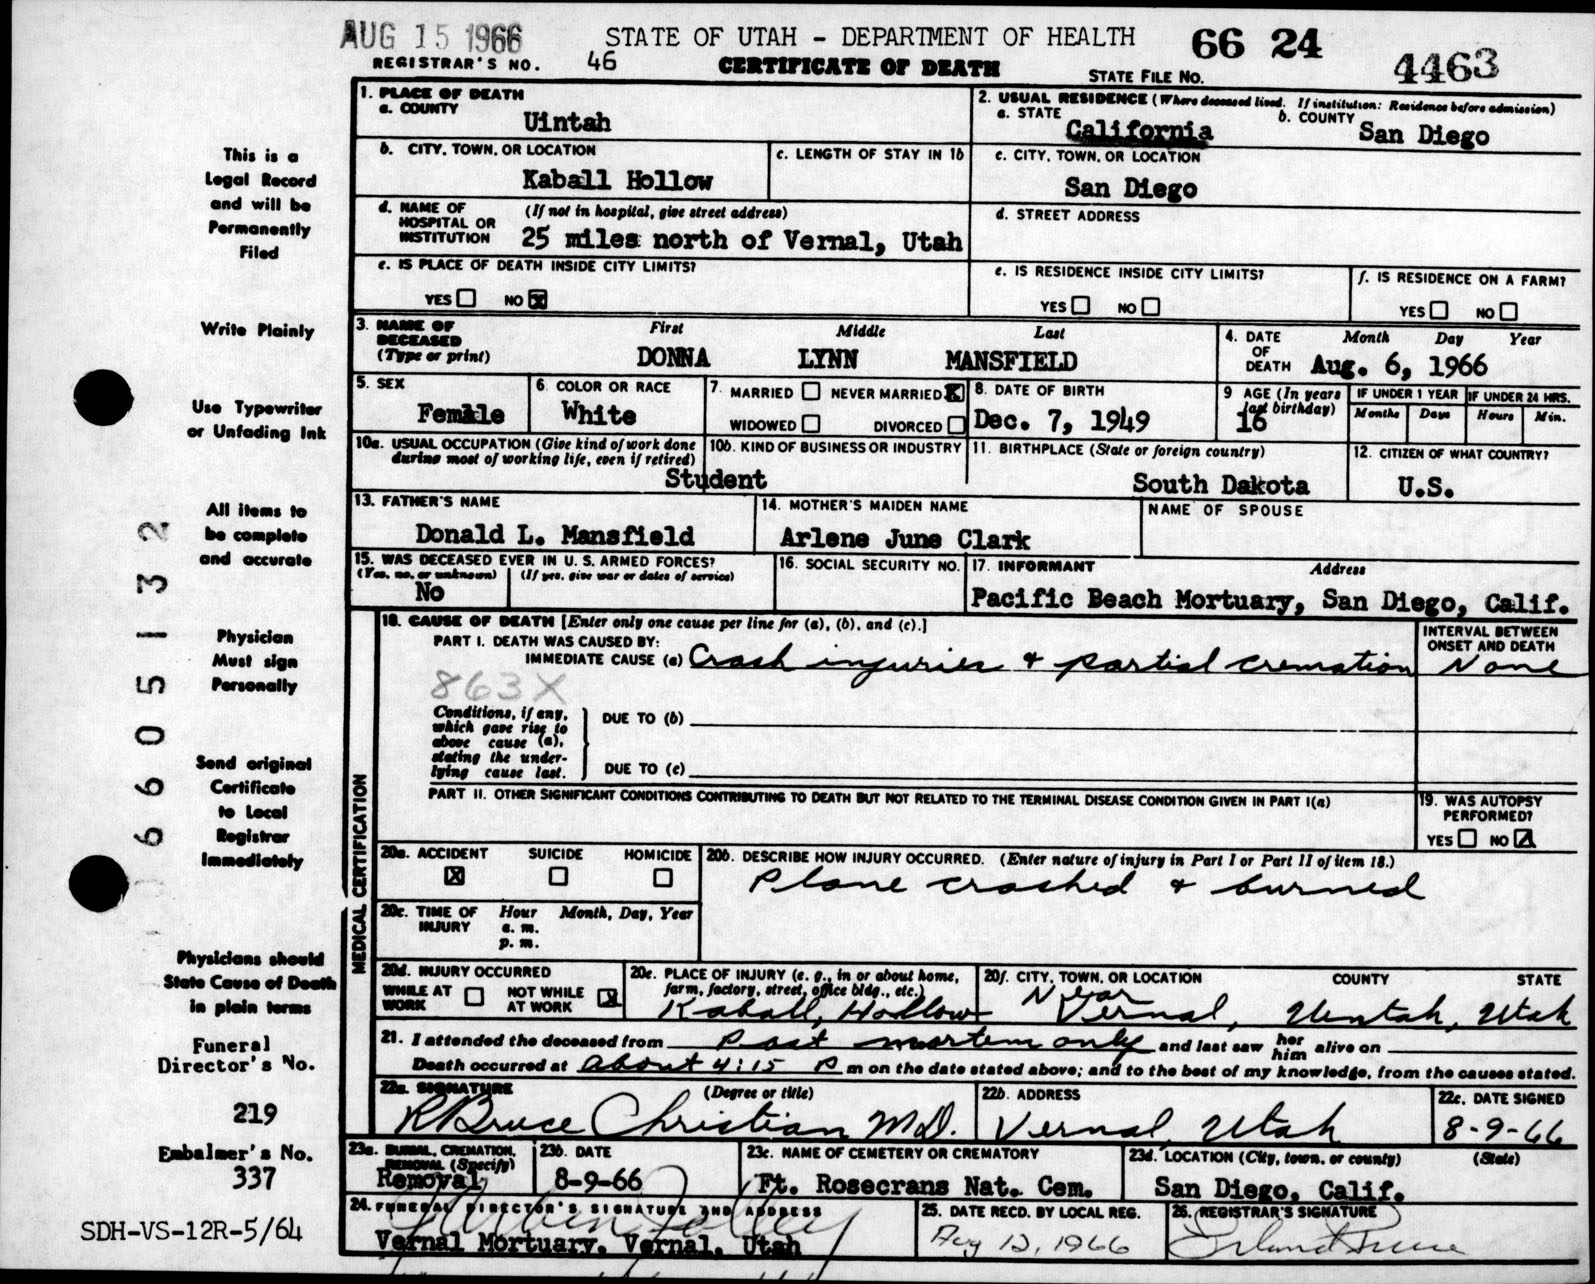 AUG 15 1966
STATE OF UTAH - DEPARTMENT OF HEALTH
66 24
4463
REGISTRAR'S NO. 46
CERTIFICATE OF DEATH
STATE FILE NO.
This is a
Legal Record
and will be
Permanently
Filed
Write Plainly
Use Typewriter
or Unfading Ink
All items to
be complete
and accurate
Physician
Must sign
Personally
Send original
Certificate
to Local
Registrar
Immediately
Physicians should
State Cause of Death
in plain terms
Funeral
Director's No.
219
Embalmer's No.
337
SDH-VS-12R-5/64
6605132
1. PLACE OF DEATH
a. COUNTY
Uintah
2. USUAL RESIDENCE (Where deceased lived. If institution: Residence before admission)
a. STATE
California
b. COUNTY
San Diego
b. CITY, TOWN, OR LOCATION
Kaball Hollow
c. LENGTH OF STAY IN 1b
c. CITY, TOWN, OR LOCATION
San Diego
d. NAME OF
HOSPITAL OR
INSTITUTION
(If not in hospital, give street address)
25 miles north of Vernal, Utah
d. STREET ADDRESS
e. IS PLACE OF DEATH INSIDE CITY LIMITS?
YES NO X
e. IS RESIDENCE INSIDE CITY LIMITS?
YES NO
f. IS RESIDENCE ON A FARM?
YES NO
3. NAME OF
DECEASED
(Type or print)
First Middle Last
DONNA LYNN MANSFIELD
4. DATE
OF
DEATH
Month Day Year
Aug. 6, 1966
5. SEX
Female
6. COLOR OR RACE
White
7. MARRIED NEVER MARRIED X
WIDOWED DIVORCED
8. DATE OF BIRTH
Dec. 7, 1949
9 AGE (In years
last birthday)
16
IF UNDER 1 YEAR
Months Days
IF UNDER 24 HRS.
Hours Min.
10a. USUAL OCCUPATION (Give kind of work done
during most of working life, even if retired)
Student
10b. KIND OF BUSINESS OR INDUSTRY
11. BIRTHPLACE (State or foreign country)
South Dakota
12. CITIZEN OF WHAT COUNTRY?
U.S.
13. FATHER'S NAME
Donald L. Mansfield
14. MOTHER'S MAIDEN NAME
Arlene June Clark
NAME OF SPOUSE
15. WAS DECEASED EVER IN U. S. ARMED FORCES?
(Yes, no, or unknown) (If yes, give war or dates of service)
No
16. SOCIAL SECURITY NO.
17. INFORMANT Address
Pacific Beach Mortuary, San Diego, Calif.
MEDICAL CERTIFICATION
18. CAUSE OF DEATH [Enter only one cause per line for (a), (b), and (c).]
PART I. DEATH WAS CAUSED BY:
IMMEDIATE CAUSE (a) Crash injuries + partial cremation
INTERVAL BETWEEN
ONSET AND DEATH
None
863X
Conditions, if any,
which gave rise to
above cause (a),
stating the under-
lying cause last.
DUE TO (b)
DUE TO (c)
PART II. OTHER SIGNIFICANT CONDITIONS CONTRIBUTING TO DEATH BUT NOT RELATED TO THE TERMINAL DISEASE CONDITION GIVEN IN PART I(a)
19. WAS AUTOPSY
PERFORMED?
YES NO X
20a. ACCIDENT SUICIDE HOMICIDE
X
20b. DESCRIBE HOW INJURY OCCURRED. (Enter nature of injury in Part I or Part II of item 18.)
Plane crashed + burned
20c. TIME OF
INJURY
Hour Month, Day, Year
a. m.
p. m.
20d. INJURY OCCURRED
WHILE AT
WORK
NOT WHILE
AT WORK X
20e. PLACE OF INJURY (e. g., in or about home,
farm, factory, street, office bldg., etc.)
Kaball, Hollow
20f. CITY, TOWN, OR LOCATION COUNTY STATE
Near
Vernal, Uintah, Utah
21. I attended the deceased from Post mortem only and last saw her him alive on
Death occurred at about 4:15 P m on the date stated above; and to the best of my knowledge, from the causes stated.
22a. SIGNATURE (Degree or title)
R Bruce Christian M.D.
22b. ADDRESS
Vernal, Utah
22c. DATE SIGNED
8-9-66
23a. BURIAL, CREMATION,
REMOVAL (Specify)
Removal
23b. DATE
8-9-66
23c. NAME OF CEMETERY OR CREMATORY
Ft. Rosecrans Nat. Cem.
23d. LOCATION (City, town, or county) (State)
San Diego, Calif.
24. FUNERAL DIRECTOR'S SIGNATURE AND ADDRESS
Vernal Mortuary, Vernal, Utah
25. DATE RECD. BY LOCAL REG.
Aug 12, 1966
26. REGISTRAR'S SIGNATURE